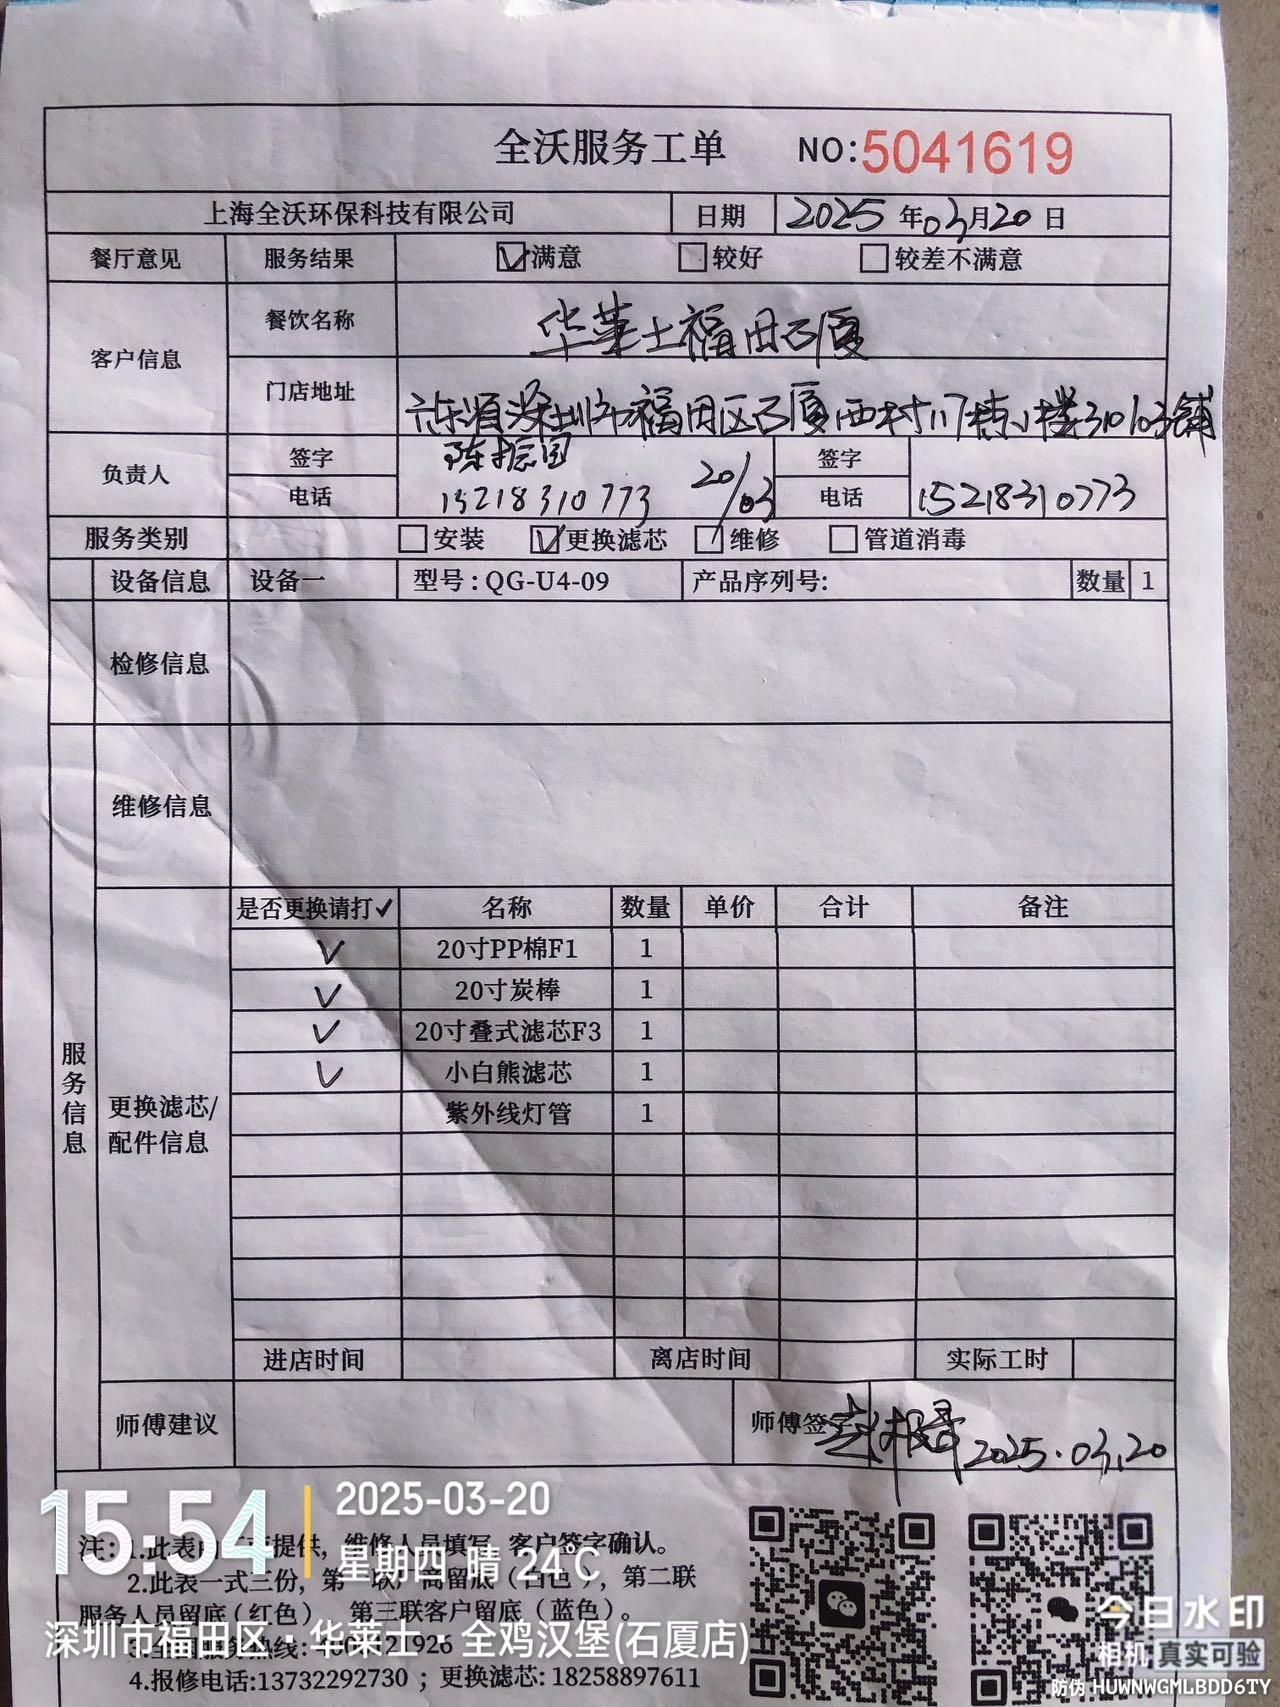 全沃服务工单 NO:5041619
上海全沃环保科技有限公司 日期 2025 年 03 月 20 日
餐厅意见 服务结果 ☑满意 ☐较好 ☐较差不满意
客户信息 餐饮名称 华莱士福田石厦
门店地址 广东省深圳市福田区石厦西村117栋1楼
负责人 签字 陈振国 20/03 签字
电话 15218310773 电话 15218310773
服务类别 ☐安装 ☑更换滤芯 ☐维修 ☐管道消毒
设备信息 设备一 型号:QG-U4-09 产品序列号: 数量 1
检修信息
维修信息
服务信息
更换滤芯/
配件信息
是否更换请打✓ 名称 数量 单价 合计 备注
✓ 20寸PP棉F1 1
✓ 20寸炭棒 1
✓ 20寸叠式滤芯F3 1
✓ 小白熊滤芯 1
紫外线灯管 1
进店时间 离店时间 实际工时
师傅建议 师傅签字 2025.03.20
15:54 2025-03-20
星期四 晴 24°C
注: 1.此表由 提供, 维修人员填写, 客户签字确认。
2.此表一式三份, 第一联 留底(白色), 第二联
服务人员留底(红色) 第三联客户留底(蓝色)。
深圳市福田区·华莱士·全鸡汉堡(石厦店)
3.全国服务热线: 21926
4.报修电话:13732292730 ; 更换滤芯: 18258897611
今日水印
相机 真实可验
防伪 HUWNWGMLBDD6TY